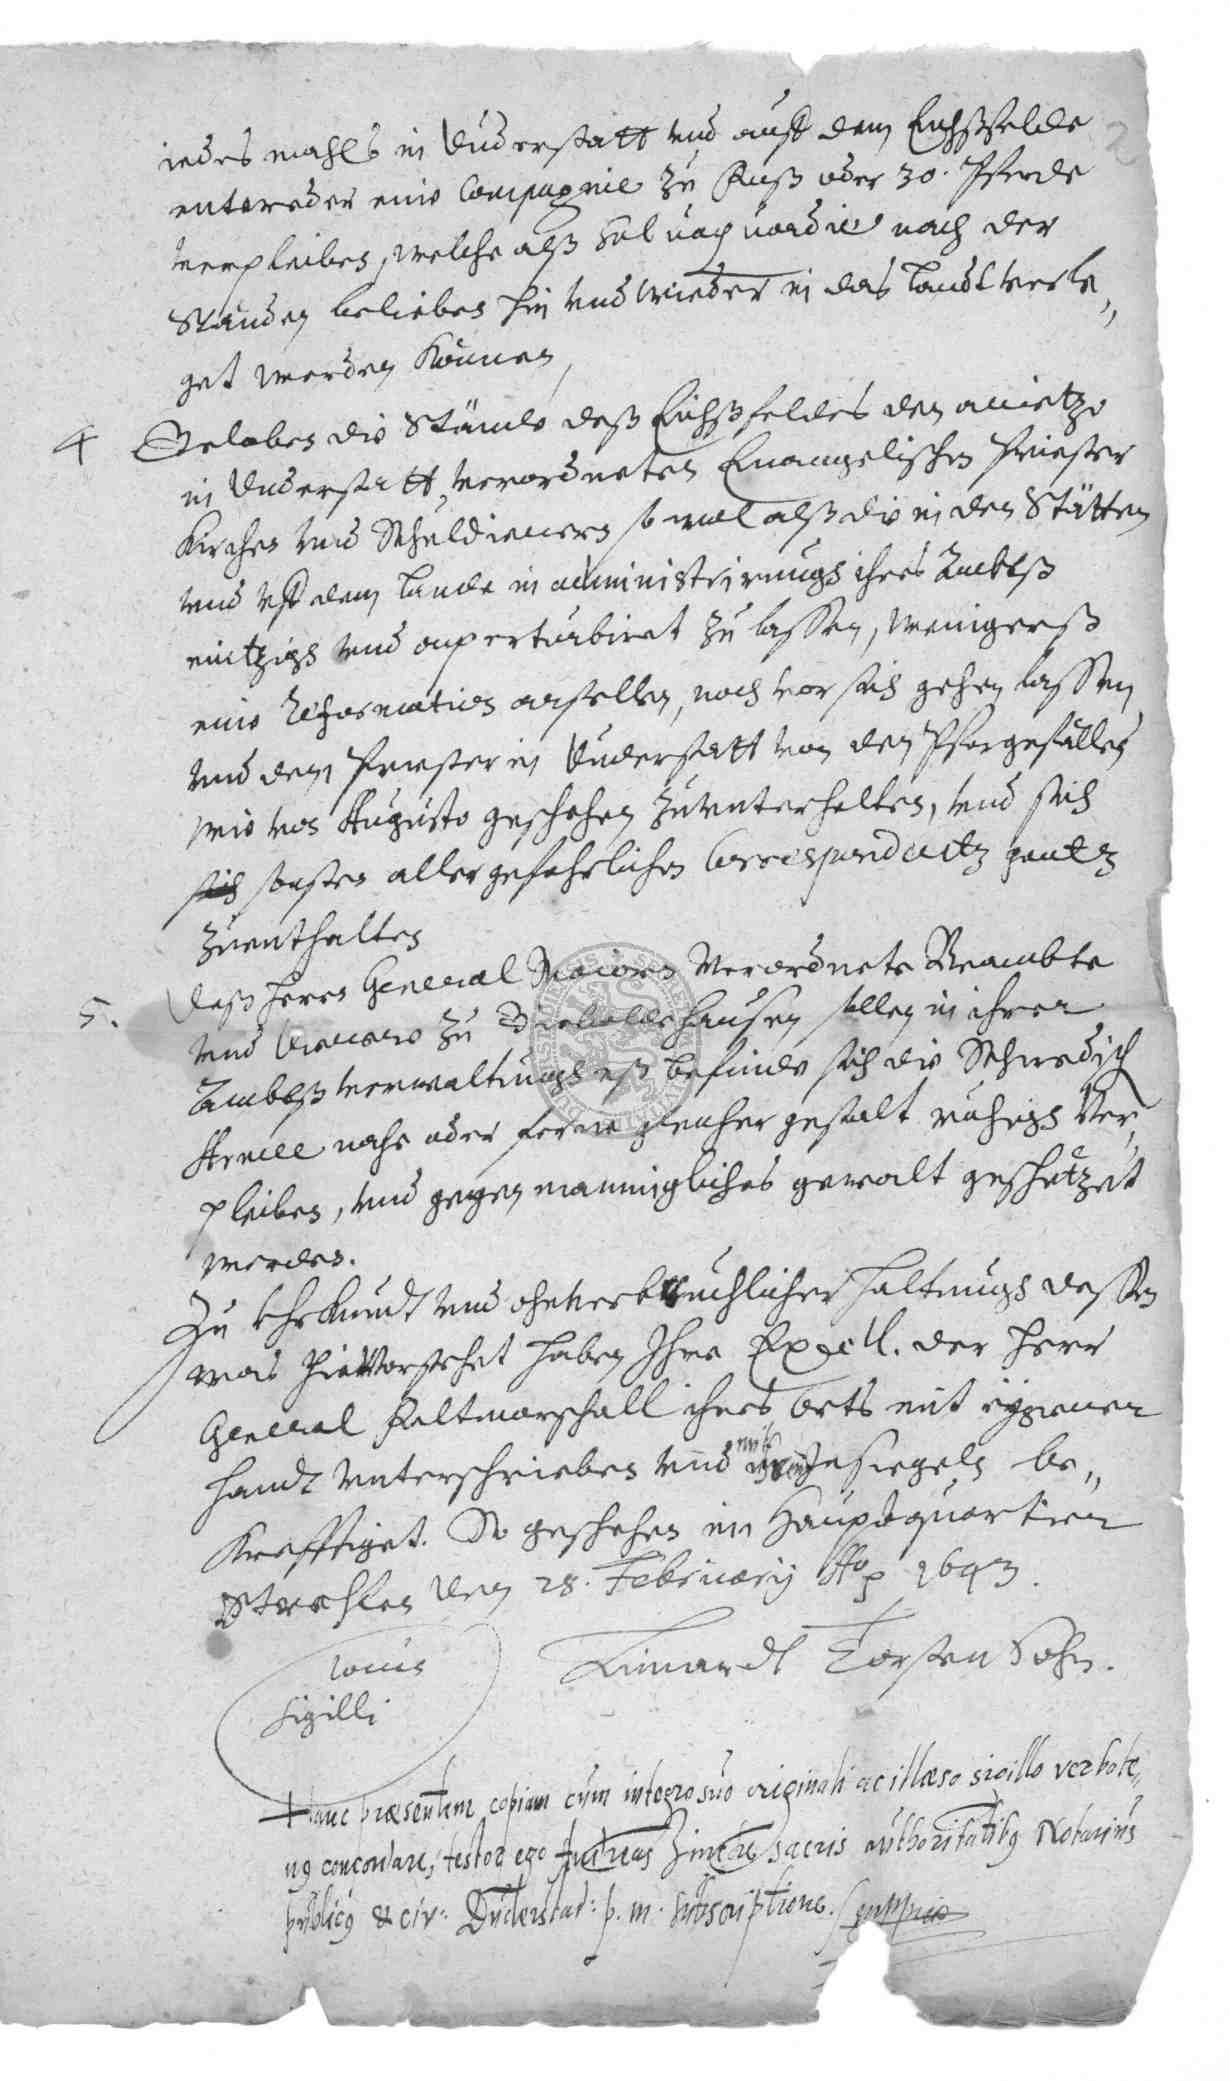 iedes mahls in Duderstatt vnd auff dem Eichßfelde
entweder eine Compagnie zu Fuß oder 30. Pferde
verpleiben, welche alß Salvaguardie nach der
Stånden belieben hin vnd wieder in das Landt verle„
get werden können,
4 Geloben die Stände deß Eichßfeldes den anietzo
in Duderstatt verordneten Euangelischen Priester
Kirchen vnd Schuldienern so wol alß die in den Stätten
vnd vff dem Lande in administrirungh ihres Ambtß
vnd onperturbiret zu lassen, wenigerß
eine Reformation anstellen, noch vor sich gehen lassen
vnd dem Priester in Duderstatt von den Pfargefällen
wie von Augusto geschehen zu vnterhalten, vnd sich
sich sonsten aller gefehrlichen Correspondentz gentz
zuenthalten
5. Deß Herrn General Maiorn Verordnete Beambte
vnd Dienere zu Gieboldehausen sollen in ihrer
Ambtß verwaltungh eß befinde sich die Schwedisch
Armee nahe oder ferne gleicher gestalt ruhigh Ver„
pleiben, vnd gegen manniglichs gewalt geschützet
werden.
Zu Uhrkundt vnd ohnverbruchlicher haltungh dessen
was hievorstehet haben Ihre Excell. der Herr
General Feltmarschall ihres orts mit eygener
Handt vnterschrieben vnd mit Insiegeln be„
krefftiget. So geschehen im Hauptquartier
Strehlen den 28. February Ao 1643.
Locus
Sigilli
Linnardt Torsten Sohn.
Hanc præsentem copiam cum integro suo originali ac illæso sigillo verbote„
nq concordare, testor ego Andreas sacris authoritatibq Notarius
publicq & civ: Duderstad: p. m. subscriptione.